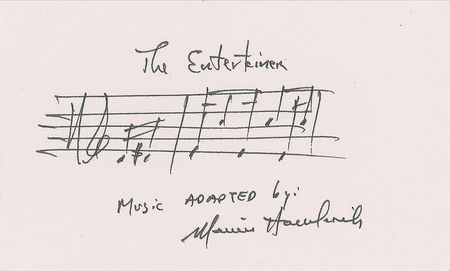 The Entertainer
Music ADAPTED by:
Marvin Hamlisch